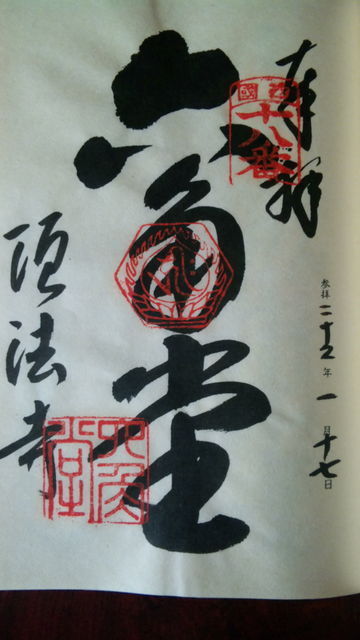 奉拝
西國十八番
参拝二十五年一月十七日
六角堂
頂法寺
六角堂